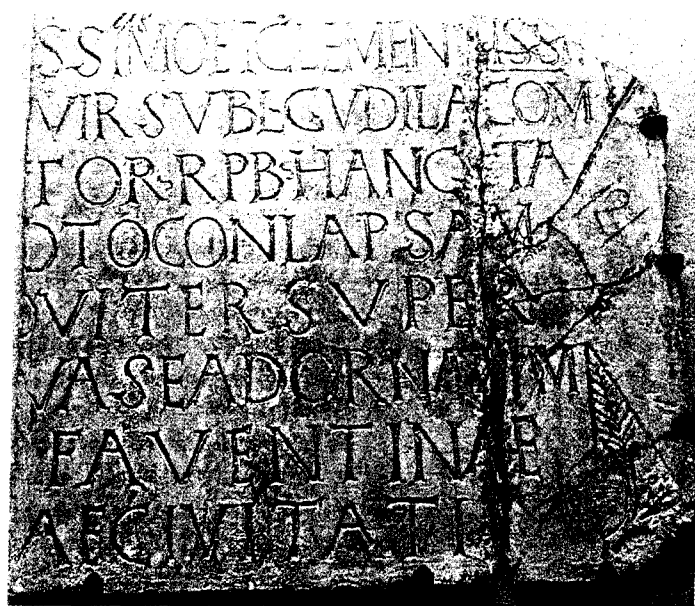 SSIMO ET CLEMENTISSI
VIR SVBL GVDILA COM
TOR R PB HANC STA
OTO CONLAPSAM
VITER SVPER
VAS E ADORNA
FAVENTINAE
AE CIVITATI